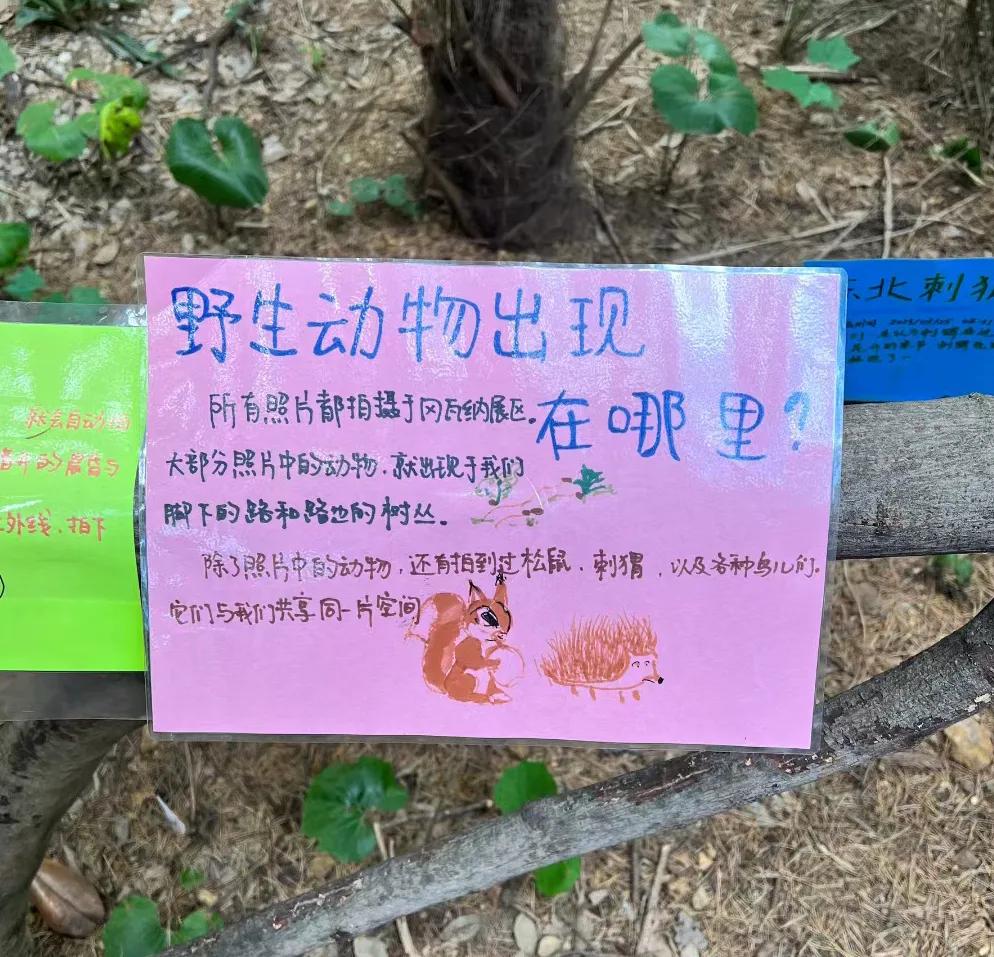 野生动物出现
在哪里?
所有照片都拍摄于冈瓦纳展区。
大部分照片中的动物,就出现于我们
脚下的路和路边的树丛。
除了照片中的动物,还有拍到过松鼠、刺猬,以及各种鸟儿们。
它们与我们共享同一片空间
就会自动
外线,拍下
北刺猬